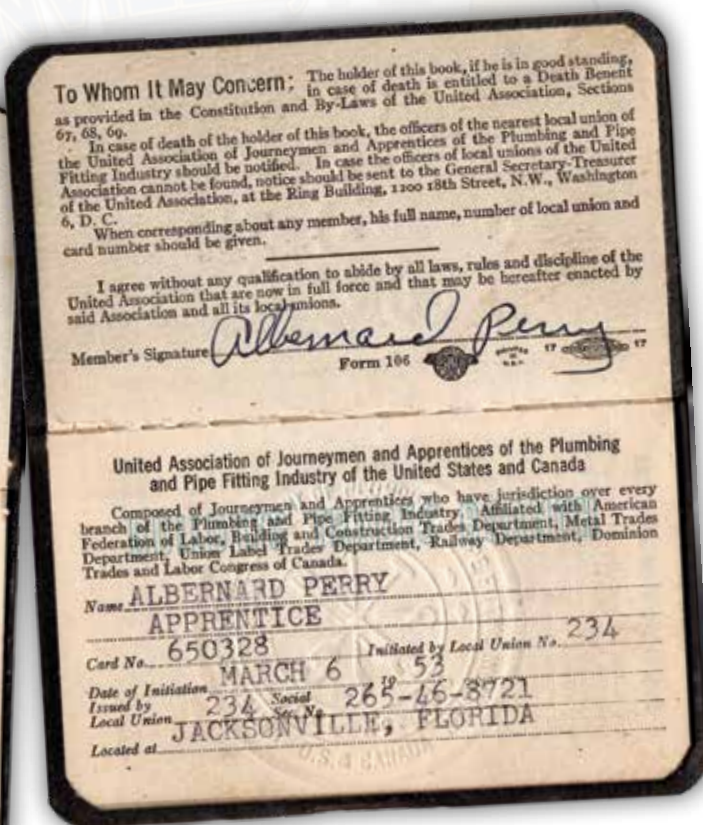 To Whom It May Concern: The holder of this book, if he is in good standing,
in case of death is entitled to a Death Benefit
as provided in the Constitution and By-Laws of the United Association, Sections
67, 68, 69.
In case of death of the holder of this book, the officers of the nearest local union of
the United Association of Journeymen and Apprentices of the Plumbing and Pipe
Fitting Industry should be notified. In case the officers of local unions of the United
Association cannot be found, notice should be sent to the General Secretary-Treasurer
of the United Association, at the Ring Building, 1200 18th Street, N.W., Washington
6, D. C.
When corresponding about any member, his full name, number of local union and
card number should be given.
I agree without any qualification to abide by all laws, rules and discipline of the
United Association that are now in full force and that may be hereafter enacted by
said Association and all its local unions.
Member's Signature Albernard Perry
Form 106 17 17
United Association of Journeymen and Apprentices of the Plumbing
and Pipe Fitting Industry of the United States and Canada
Composed of Journeymen and Apprentices who have jurisdiction over every
branch of the Plumbing and Pipe Fitting Industry. Affiliated with American
Federation of Labor, Building and Construction Trades Department, Metal Trades
Department, Union Label Trades Department, Railway Department, Dominion
Trades and Labor Congress of Canada.
Name ALBERNARD PERRY
APPRENTICE
Card No. 650328 Initiated by Local Union No. 234
Date of Initiation MARCH 6 19 53
Issued by
Local Union 234 Social Sec. No. 265-46-8721
Located at JACKSONVILLE, FLORIDA
U.S. & CANADA